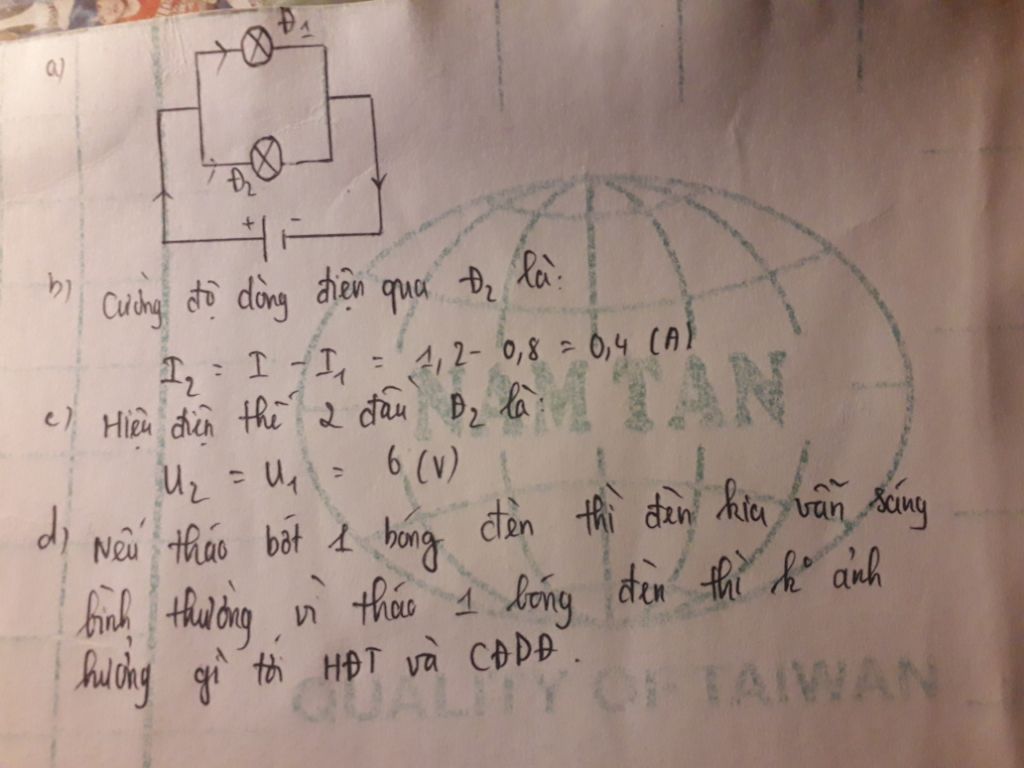 a)
Đ1
Đ2
+ -
b) Cường độ dòng điện qua Đ2 là:
I2 = I - I1 = 1,2 - 0,8 = 0,4 (A)
c) Hiệu điện thế 2 đầu Đ2 là:
U2 = U1 = 6 (V)
d) Nếu tháo bớt 1 bóng đèn thì đèn kia vẫn sáng
bình thường vì tháo 1 bóng đèn thì ko ảnh
hưởng gì tới HĐT và CĐDĐ.
NAM TAN
QUALITY OF TAIWAN